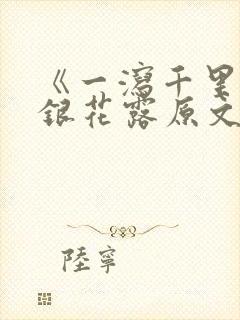 《一瀉千里
銀花露原文
陸寧